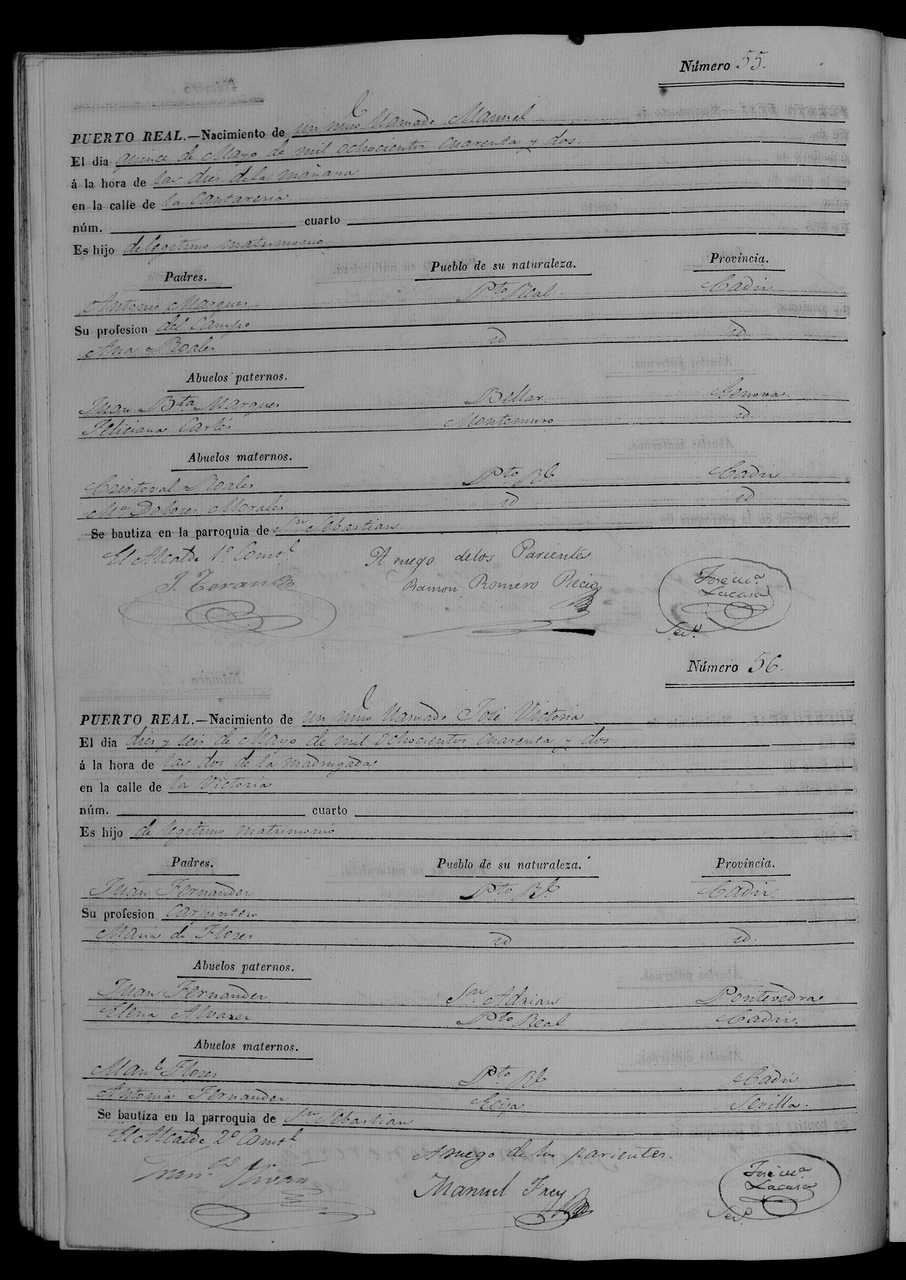 Número 55.
PUERTO REAL.—Nacimiento de un niño llamado Manuel
El dia quince de Mayo de mil ochocientos cuarenta y dos.
á la hora de las dies de la mañana
en la calle de la Cantareria
núm. cuarto
Es hijo de legitimo matrimonio
Padres. Pueblo de su naturaleza. Provincia.
Antonio Marques Pto. Real. Cadiz
Su profesion del Campo
Ana Roales id id.
Abuelos paternos.
Juan Bta Marques Genova
Feliciana Cartes Montemuro id.
Abuelos maternos.
Cristoval Roales Pto Rl. Cadiz
Ma. Dolores Morales id id
Se bautiza en la parroquia de Sn Sebastian
El Alcalde 1º Consl
J. Teran
A ruego de los Parientes
Ramon Romero Recio
José Ma
Lacasa
Seo.
Número 56.
PUERTO REAL.—Nacimiento de un niño llamado José Victoria
El dia dies y seis de Mayo de mil ochocientos cuarenta y dos
á la hora de las dos de la madrugada
en la calle de la Victoria
núm. cuarto
Es hijo de legitimo matrimonio
Padres. Pueblo de su naturaleza. Provincia.
Juan Fernandez Pto Rl. Cadiz
Su profesion Carpintero
Maria de Flores id id.
Abuelos paternos.
Juan Fernandez Sn Adrian Pontevedra
Elena Alvarez Pto Real Cadiz.
Abuelos maternos.
Manl Flores Pto Rl. Cadiz
Antonia Fernandez Ecija Sevilla.
Se bautiza en la parroquia de Sn Sebastian
El Alcalde 2º Consl
A ruego de los parientes.
Manuel Frey
José Ma
Lacasa
Seo.